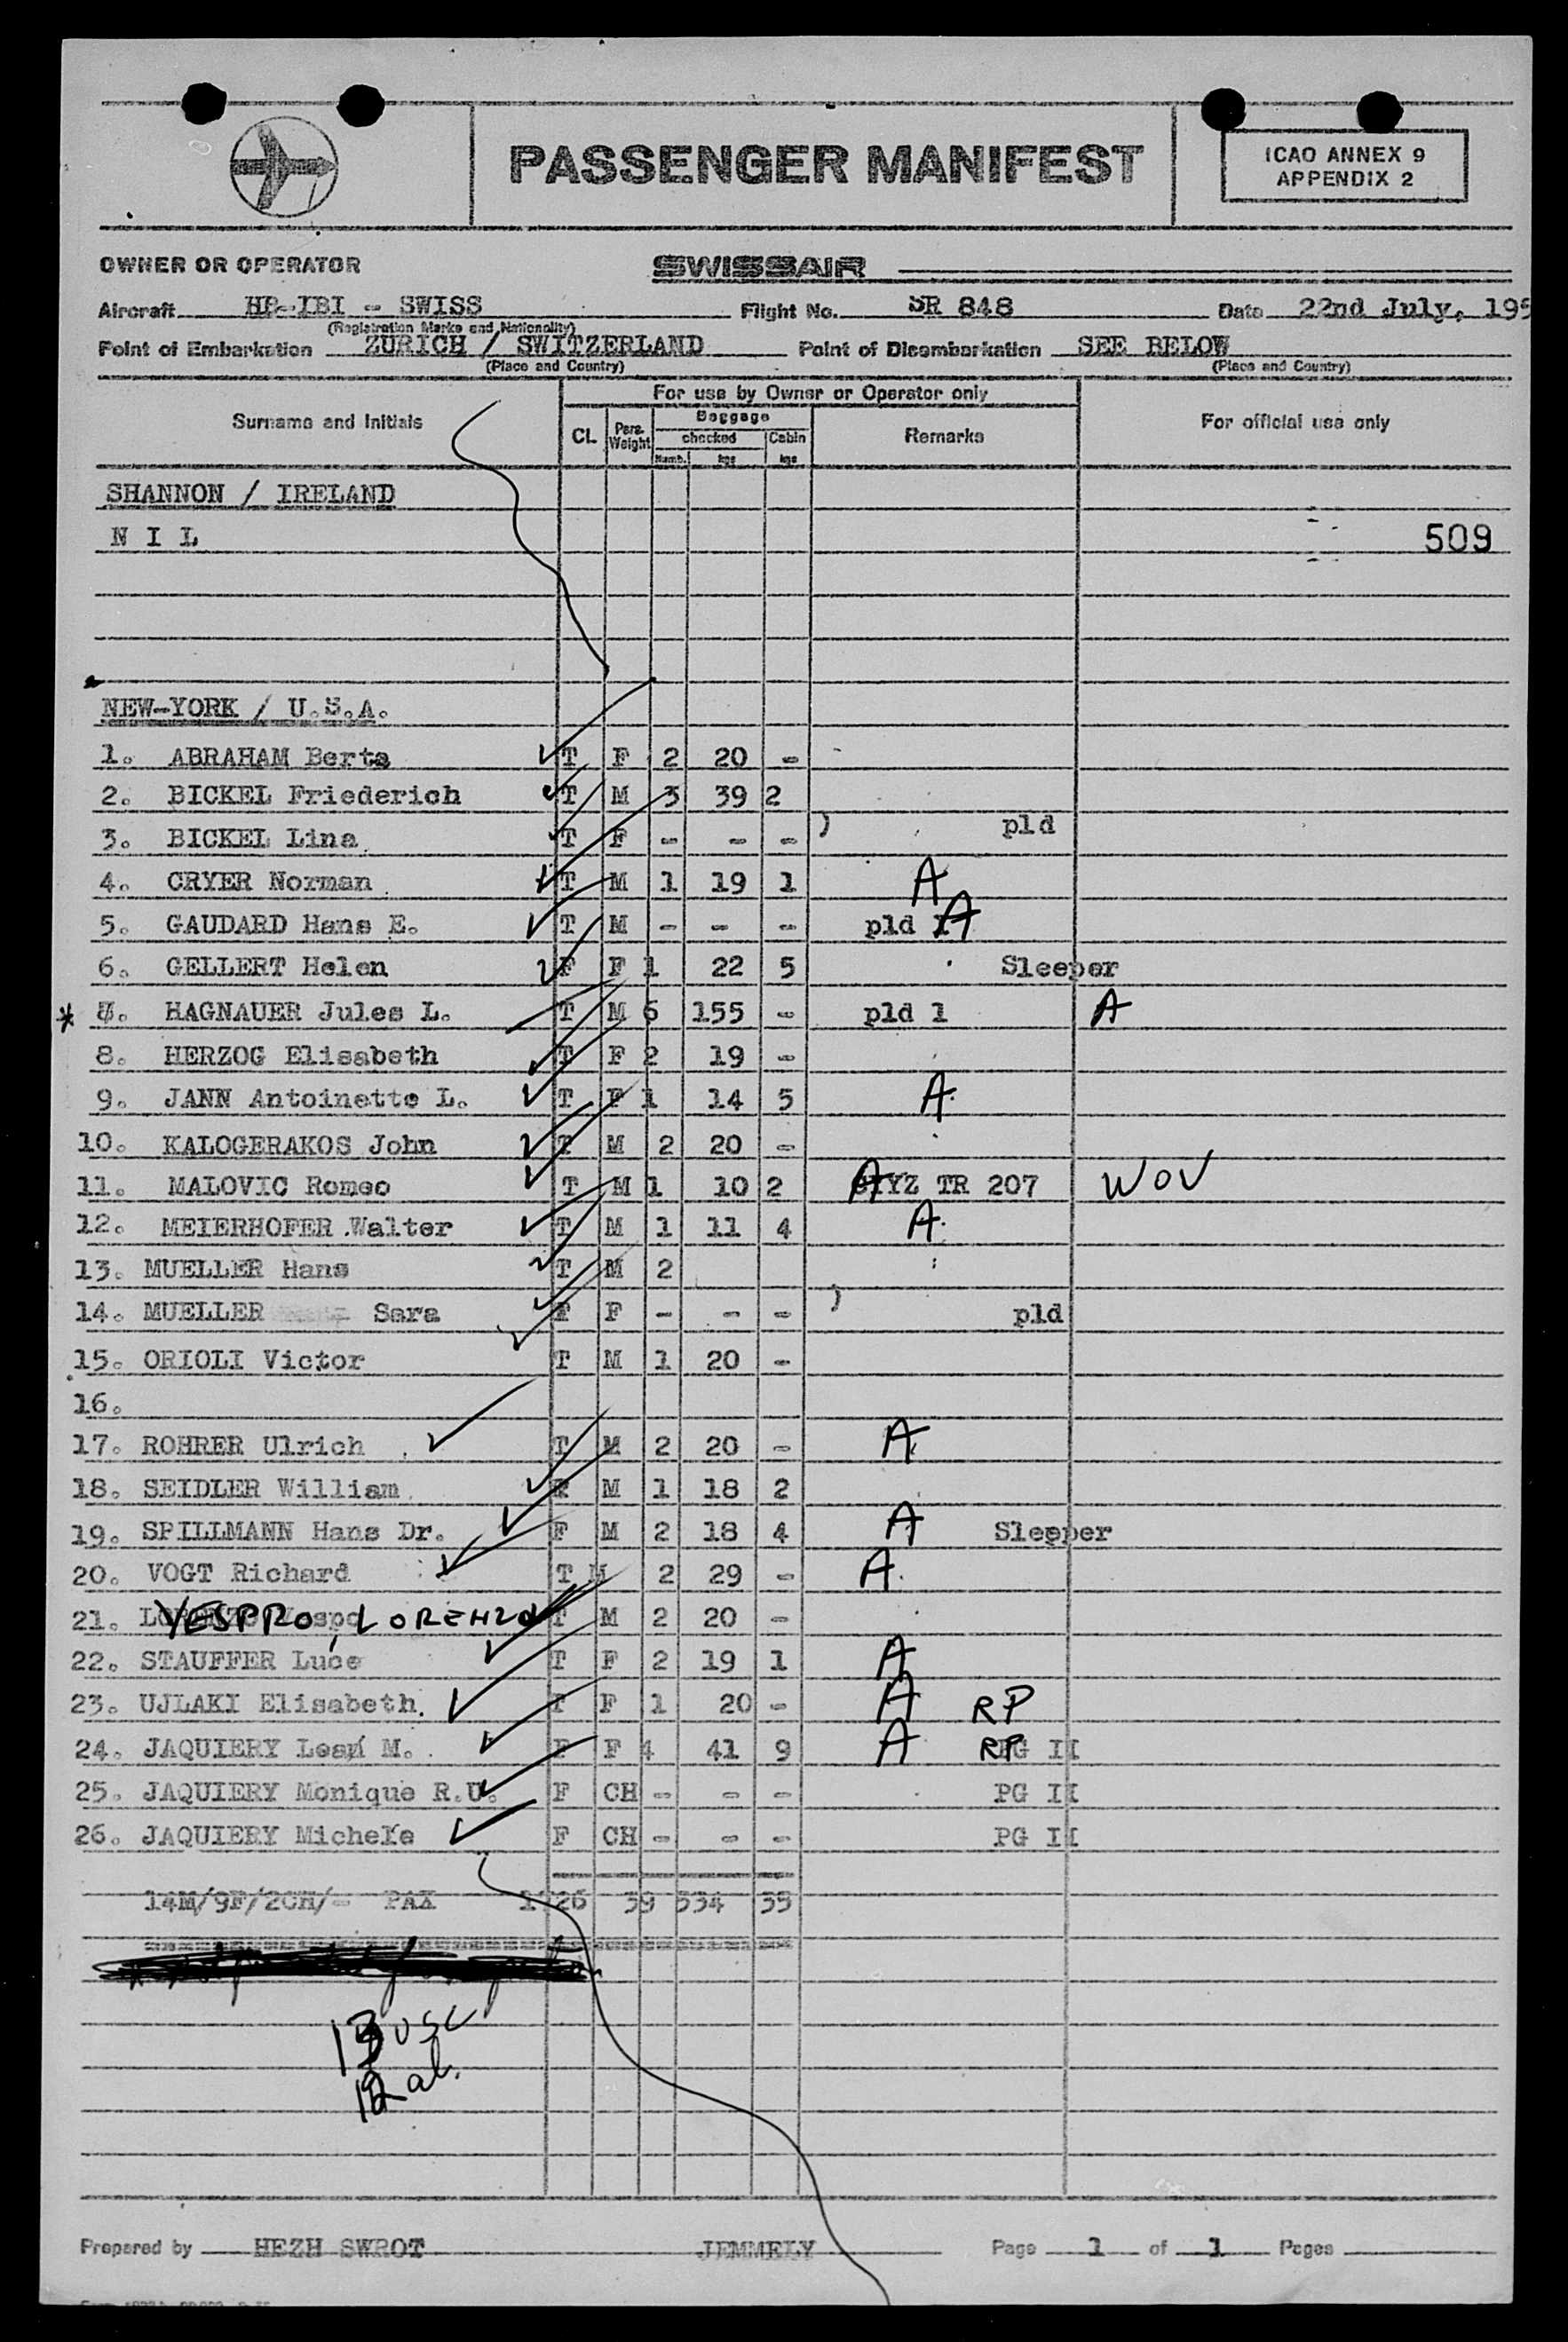 PASSENGER MANIFEST
ICAO ANNEX 9
APPENDIX 2
OWNER OR OPERATOR SWISSAIR
Aircraft HB-IBI - SWISS Flight No. SR 848 Date 22nd July, 195
(Registration Marks and Nationality)
Point of Embarkation ZURICH / SWITZERLAND Point of Disembarkation SEE BELOW
(Place and Country) (Place and Country)
For use by Owner or Operator only
Surname and Initials CL. Pass. Weight Baggage Remarks For official use only
checked Cabin
Numb. kgs kgs
SHANNON / IRELAND
N I L 509
NEW-YORK / U.S.A.
1. ABRAHAM Berta T F 2 20 -
2. BICKEL Friederich T M 3 39 2
3. BICKEL Lina T F - - - ) pld
4. CRYER Norman T M 1 19 1 A
5. GAUDARD Hans E. T M - - - pld A
6. GELLERT Helen F F 1 22 5 Sleeper
* 7. HAGNAUER Jules L. T M 6 155 - pld 1 A
8. HERZOG Elisabeth T F 2 19 -
9. JANN Antoinette L. T F 1 14 5 A
10. KALOGERAKOS John T M 2 20 -
11. MALOVIC Romeo T M 1 10 2 A YZ TR 207 WOV
12. MEIERHOFER Walter T M 1 11 4 A
13. MUELLER Hans T M 2
14. MUELLER Sara T F - - - ) pld
15. ORIOLI Victor T M 1 20 -
16.
17. ROHRER Ulrich T M 2 20 - A
18. SEIDLER William M 1 18 2
19. SPILLMANN Hans Dr. F M 2 18 4 A Sleeper
20. VOGT Richard T M 2 29 - A
21. YESPRO, LORENZO T M 2 20 -
22. STAUFFER Luce T F 2 19 1 A
23. UJLAKI Elisabeth T F 1 20 - A RP
24. JAQUIERY Lean M. F F 4 41 9 A RP PG II
25. JAQUIERY Monique R.U. F CH - - - PG II
26. JAQUIERY Michele F CH - - - PG II
14M/9F/2CH/- PAX 26 39 534 35
13 USC
12 al.
Prepared by HEZH SWROT JEMMELY Page 1 of 1 Pages